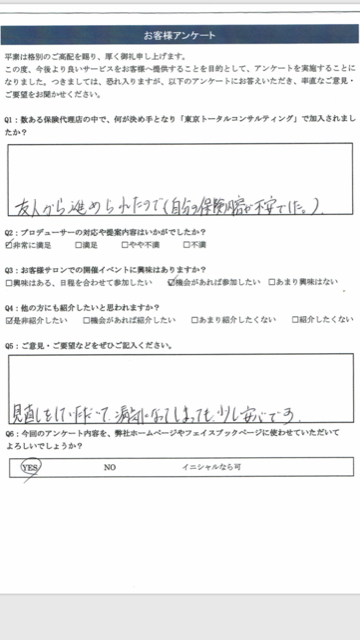 お客様アンケート
平素は格別のご高配を賜り、厚く御礼申し上げます。
この度、今後より良いサービスをお客様へ提供することを目的として、アンケートを実施することに
なりました。つきましては、恐れ入りますが、以下のアンケートにお答えいただき、率直なご意見・
ご要望をお聞かせください。
Q1：数ある保険代理店の中で、何が決め手となり「東京トータルコンサルティング」で加入されまし
たか？
友人から進められたので(自分の保険内容が不安でした。).
Q2：プロデューサーの対応や提案内容はいかがでしたか？
☑非常に満足 □満足 □やや不満 □不満
Q3：お客様サロンでの開催イベントに興味はありますか？
□興味はある、日程を合わせて参加したい ☑機会があれば参加したい □あまり興味はない
Q4：他の方にも紹介したいと思われますか？
☑是非紹介したい □機会があれば紹介したい □あまり紹介したくない □紹介したくない
Q5：ご意見・ご要望などをぜひご記入ください。
見直しをしていただいて、病気になってしまっても、少し安心です。
Q6：今回のアンケート内容を、弊社ホームページやフェイスブックページに使わせていただいて
よろしいでしょうか？
YES NO イニシャルなら可